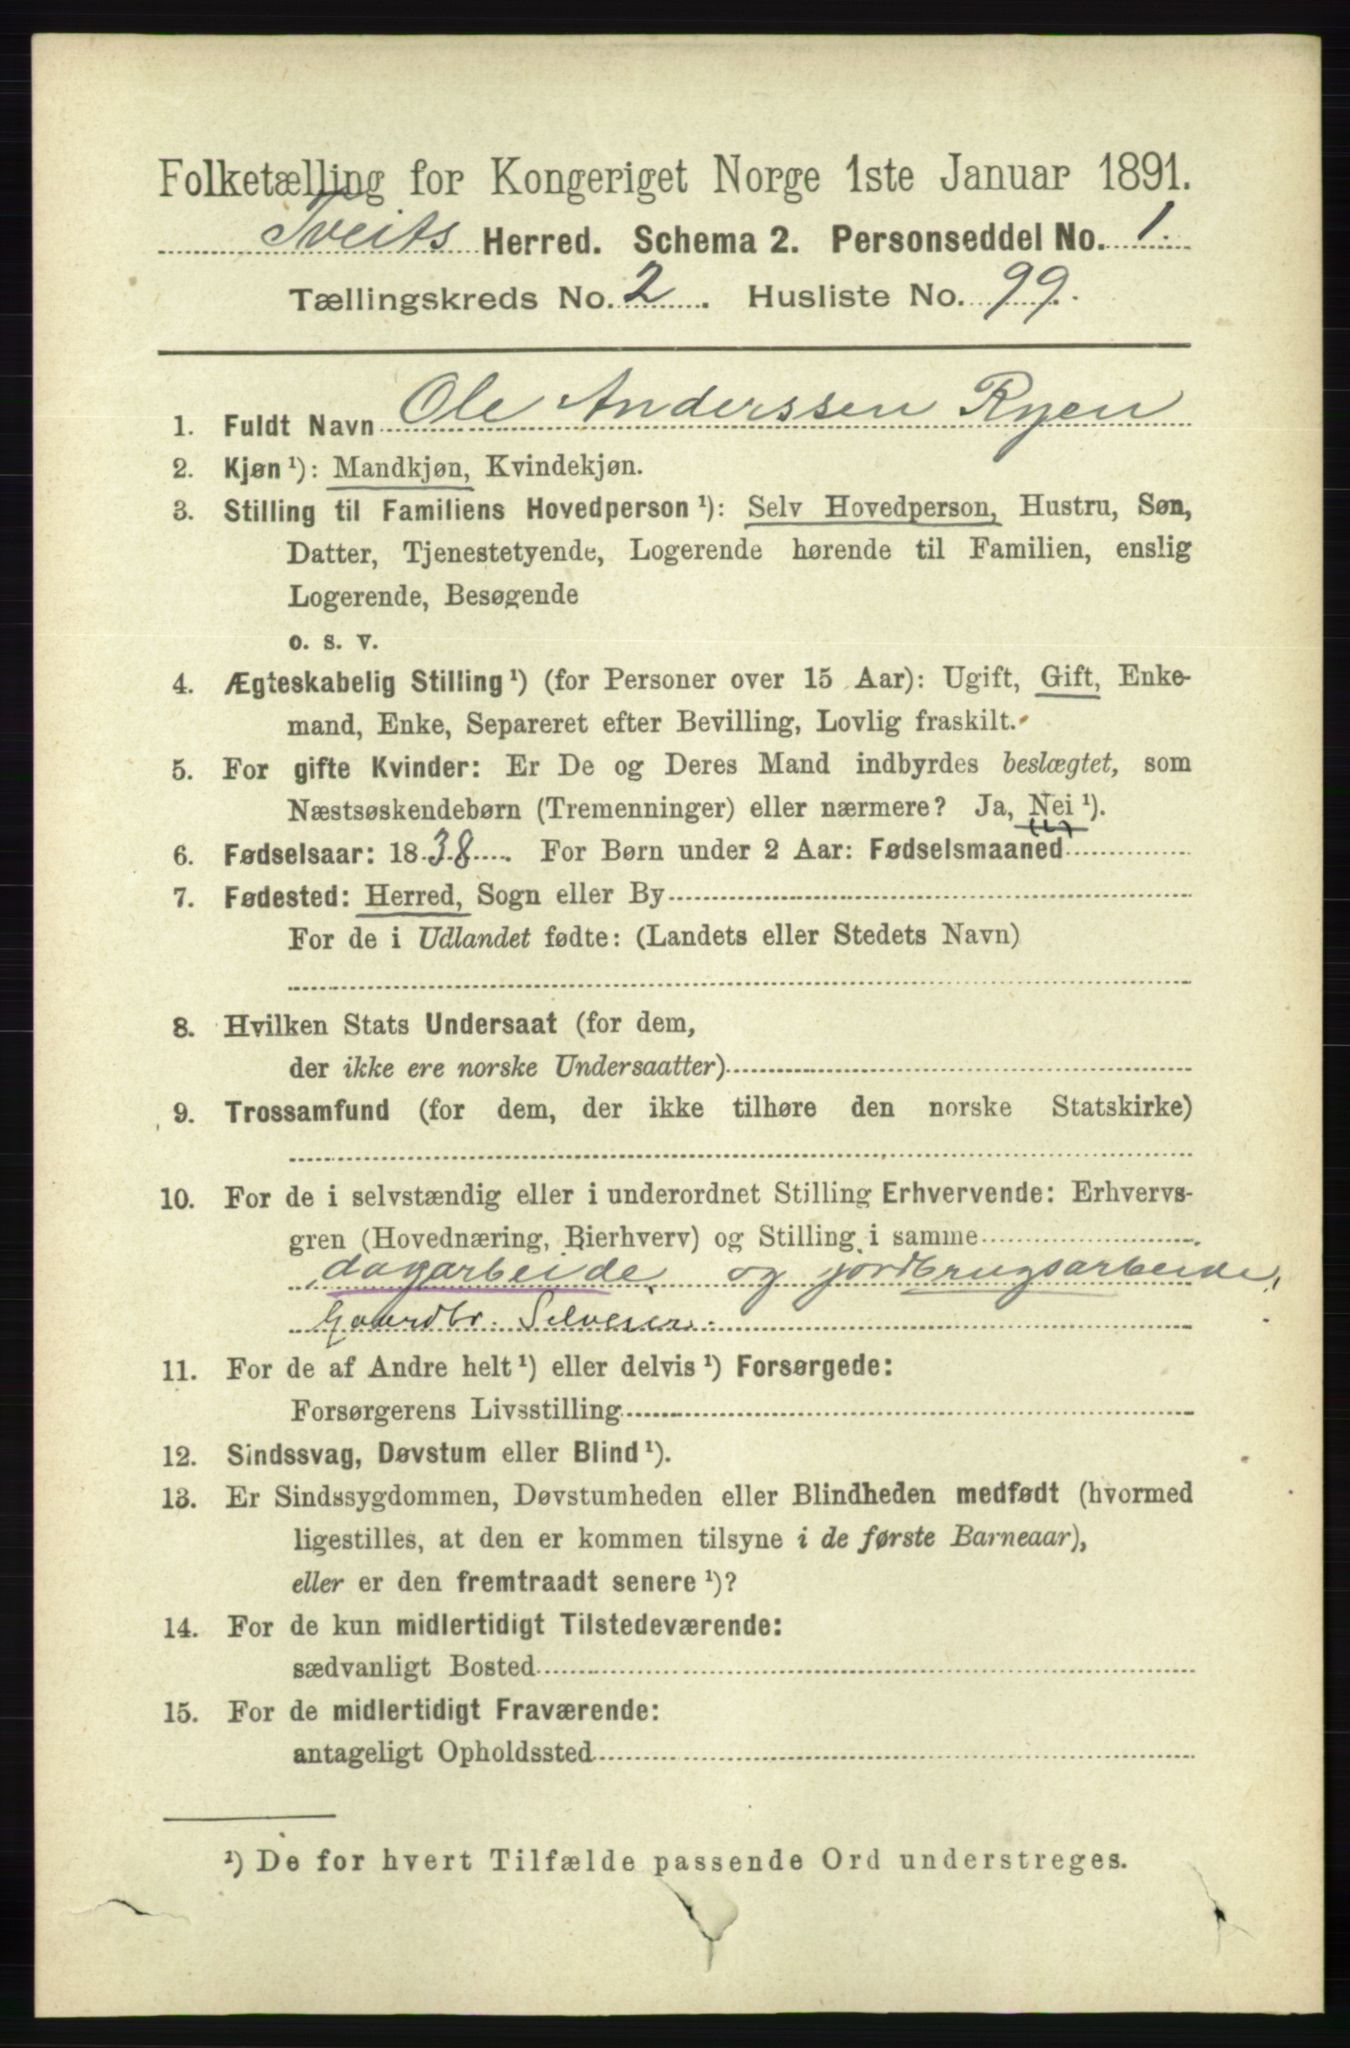 Folketælling for Kongeriget Norge 1ste Januar 1891.
Tveits Herred. Schema 2. Personseddel No. 1.
Tællingskreds No. 2. Husliste No. 99.
1. Fuldt Navn Ole Anderssen Ryen
2. Kjøn ¹): Mandkjøn, Kvindekjøn.
3. Stilling til Familiens Hovedperson ¹): Selv Hovedperson, Hustru, Søn,
Datter, Tjenestetyende, Logerende hørende til Familien, enslig
Logerende, Besøgende
o. s. v.
4. Ægteskabelig Stilling ¹) (for Personer over 15 Aar): Ugift, Gift, Enke-
mand, Enke, Separeret efter Bevilling, Lovlig fraskilt.
5. For gifte Kvinder: Er De og Deres Mand indbyrdes beslægtet, som
Næstsøskendebørn (Tremenninger) eller nærmere? Ja, Nei ¹).
6. Fødselsaar: 1838. For Børn under 2 Aar: Fødselsmaaned
7. Fødested: Herred, Sogn eller By
For de i Udlandet fødte: (Landets eller Stedets Navn)
8. Hvilken Stats Undersaat (for dem,
der ikke ere norske Undersaatter)
9. Trossamfund (for dem, der ikke tilhøre den norske Statskirke)
10. For de i selvstændig eller i underordnet Stilling Erhvervende: Erhvervs-
gren (Hovednæring, Bierhverv) og Stilling i samme
dagarbeide og jordbrugsarbeide,
Gaardbr. Selveier.
11. For de af Andre helt ¹) eller delvis ¹) Forsørgede:
Forsørgerens Livsstilling
12. Sindssvag, Døvstum eller Blind ¹).
13. Er Sindssygdommen, Døvstumheden eller Blindheden medfødt (hvormed
ligestilles, at den er kommen tilsyne i de første Barneaar),
eller er den fremtraadt senere ¹)?
14. For de kun midlertidigt Tilstedeværende:
sædvanligt Bosted
15. For de midlertidigt Fraværende:
antageligt Opholdssted
¹) De for hvert Tilfælde passende Ord understreges.